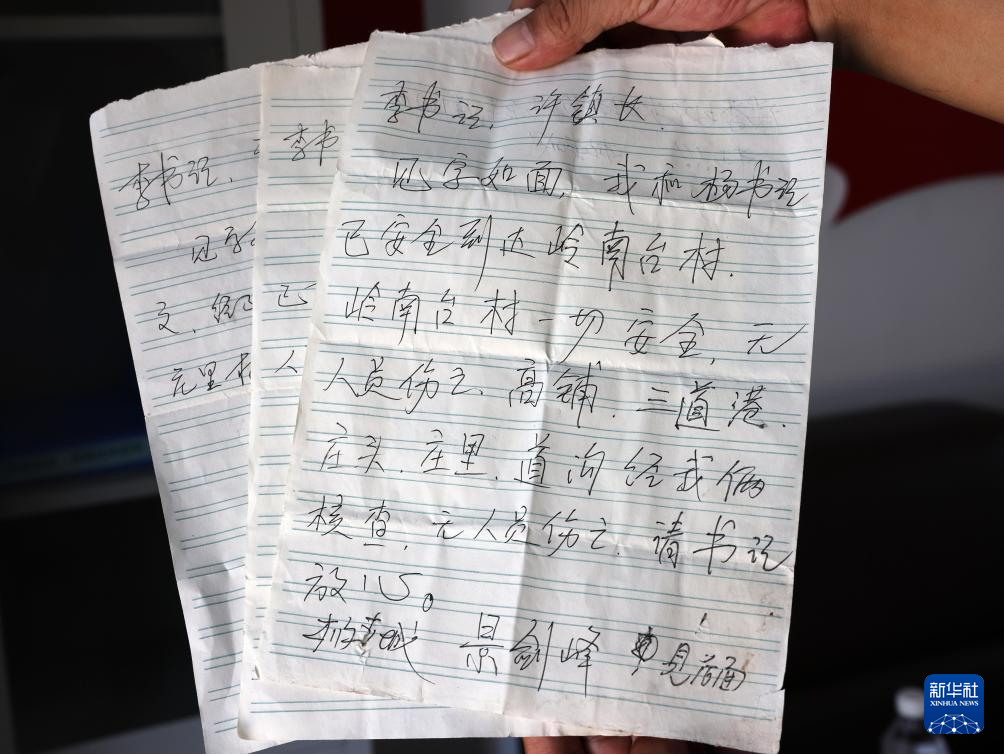 李书记、许镇长.
见字如面, 我和杨书记
已安全到达岭南台村.
岭南台村一切安全, 无
人员伤亡、高铺. 三道港.
庄头. 庄里. 道沟经我俩
核查, 无人员伤亡. 请书记
放心。
景剑峰
李书记,
见字
文. 经
庄里村
李书
已
人
新华社
XINHUA NEWS